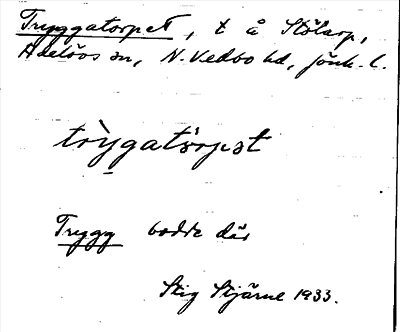 Tryggatorpet, t å Stölarp,
Adelövs sn, N. Vedbo hd, Jönk. l.
trỳgatòrpət
Trygg bodde där
Stig Stjärne 1933.